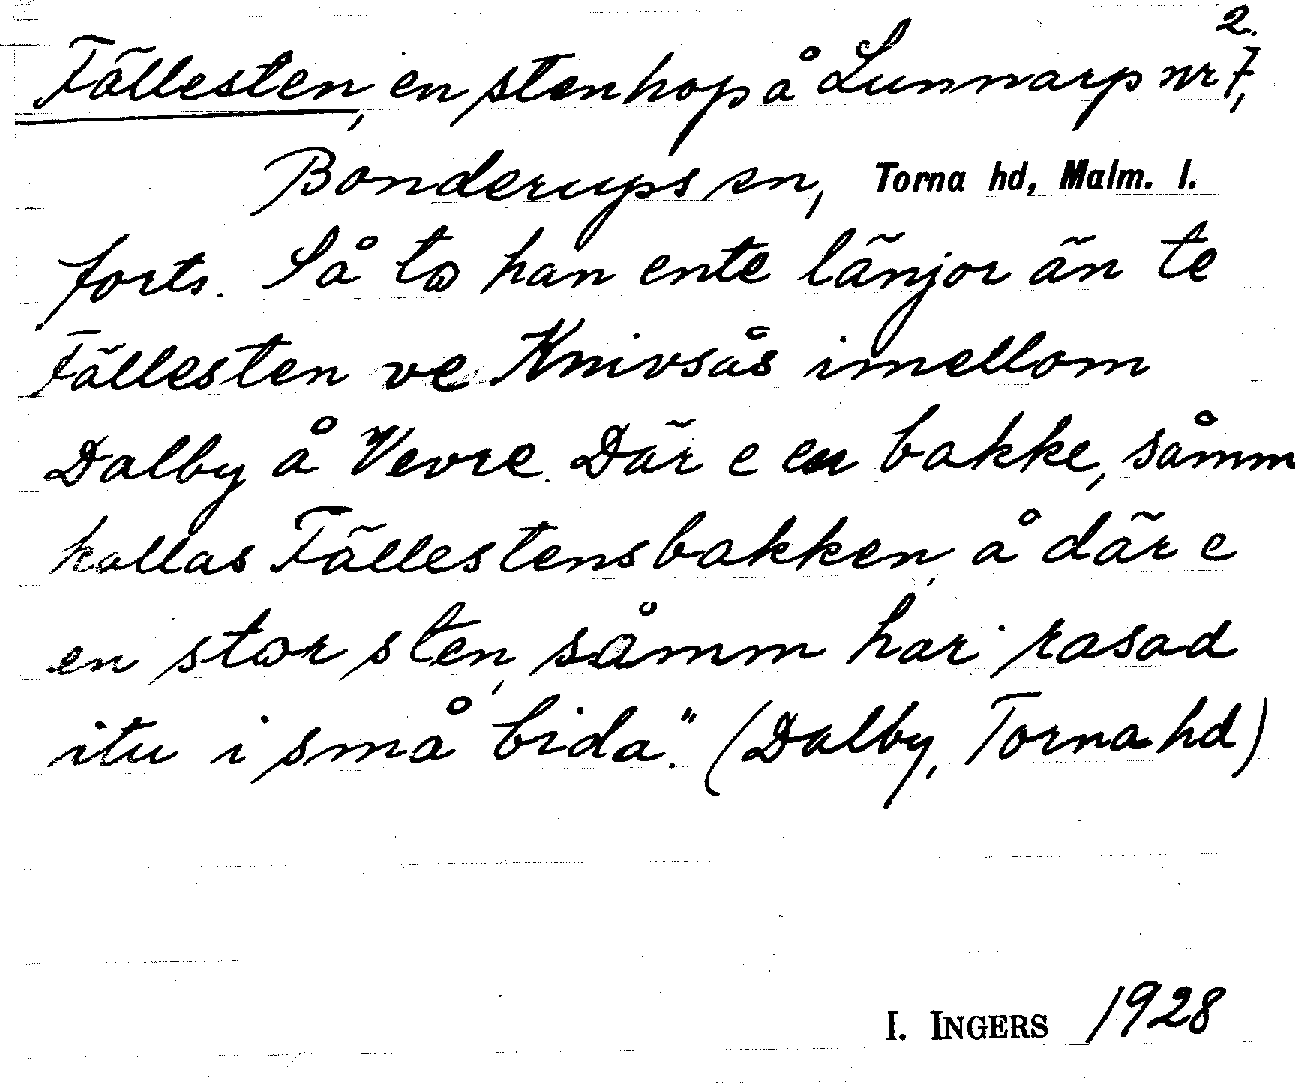 2.
Fällesten, en stenhop å Lunnarp nr 7,
Bonderups sn, Torna hd, Malm. l.
forts. Så to han ente länjor än te
Fällesten ve Knivsås imellom
Dalby å Vevre. Där e en bakke, såmm
kallas Fällestensbakken, å där e
en stor sten, såmm har rasad
itu i små bida." (Dalby, Torna hd)
I. INGERS 1928